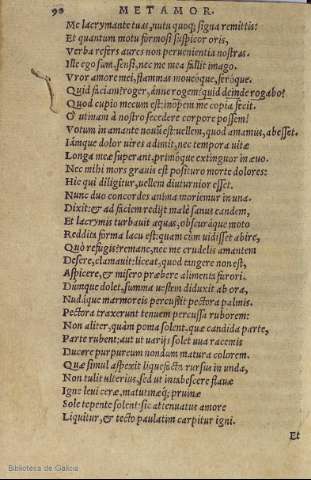 90 METAMOR.
Me lacrymante tuas, nutu quoq; signa remittis:
Et quantum motu formosi suspicor oris,
Verba refers aures non peruenientia nostras.
Ille ego sum, sensi, nec me mea fallit imago.
Vror amore mei, flammas moueóque, feróque.
Quid faciam? roger, ánne rogem? quid deinde rogabo?
Quod cupio mecum est: inopem me copia fecit.
O utinam à nostro secedere corpore possem!
Votum in amante nouũ est: uellem, quod amamus, abesset.
Iámque dolor uires adimit, nec tempora uitæ
Longa meæ superant, primóque extinguor in æuo.
Nec mihi mors grauis est posituro morte dolores:
Hic qui diligitur, uellem diuturnior esset.
Nunc duo concordes anima moriemur in una.
Dixit: & ad faciem redijt malè sanus eandem,
Et lacrymis turbauit aquas, obscuráque moto
Reddita forma lacu est: quam cum uidisset abire,
Quò refugis? remane, nec me crudelis amantem
Desere, clamauit: liceat, quod tangere non est,
Aspicere, & misero præbere alimenta furori.
Dumque dolet, summa uestem diduxit ab ora,
Nudáque marmoreis percussit pectora palmis.
Pectora traxerunt tenuem percussa ruborem:
Non aliter, quàm poma solent, quæ candida parte,
Parte rubent: aut ut uarijs solet uua racemis
Ducere purpureum nondum matura colorem.
Quæ simul aspexit liquefacta rursus in unda,
Non tulit ulterius, sed ut intabescere flauæ
Igne leui ceræ, matutinæq; pruinæ
Sole tepente solent: sic attenuatus amore
Liquitur, & tecto paulatim carpitur igni.
Et
Biblioteca de Galicia